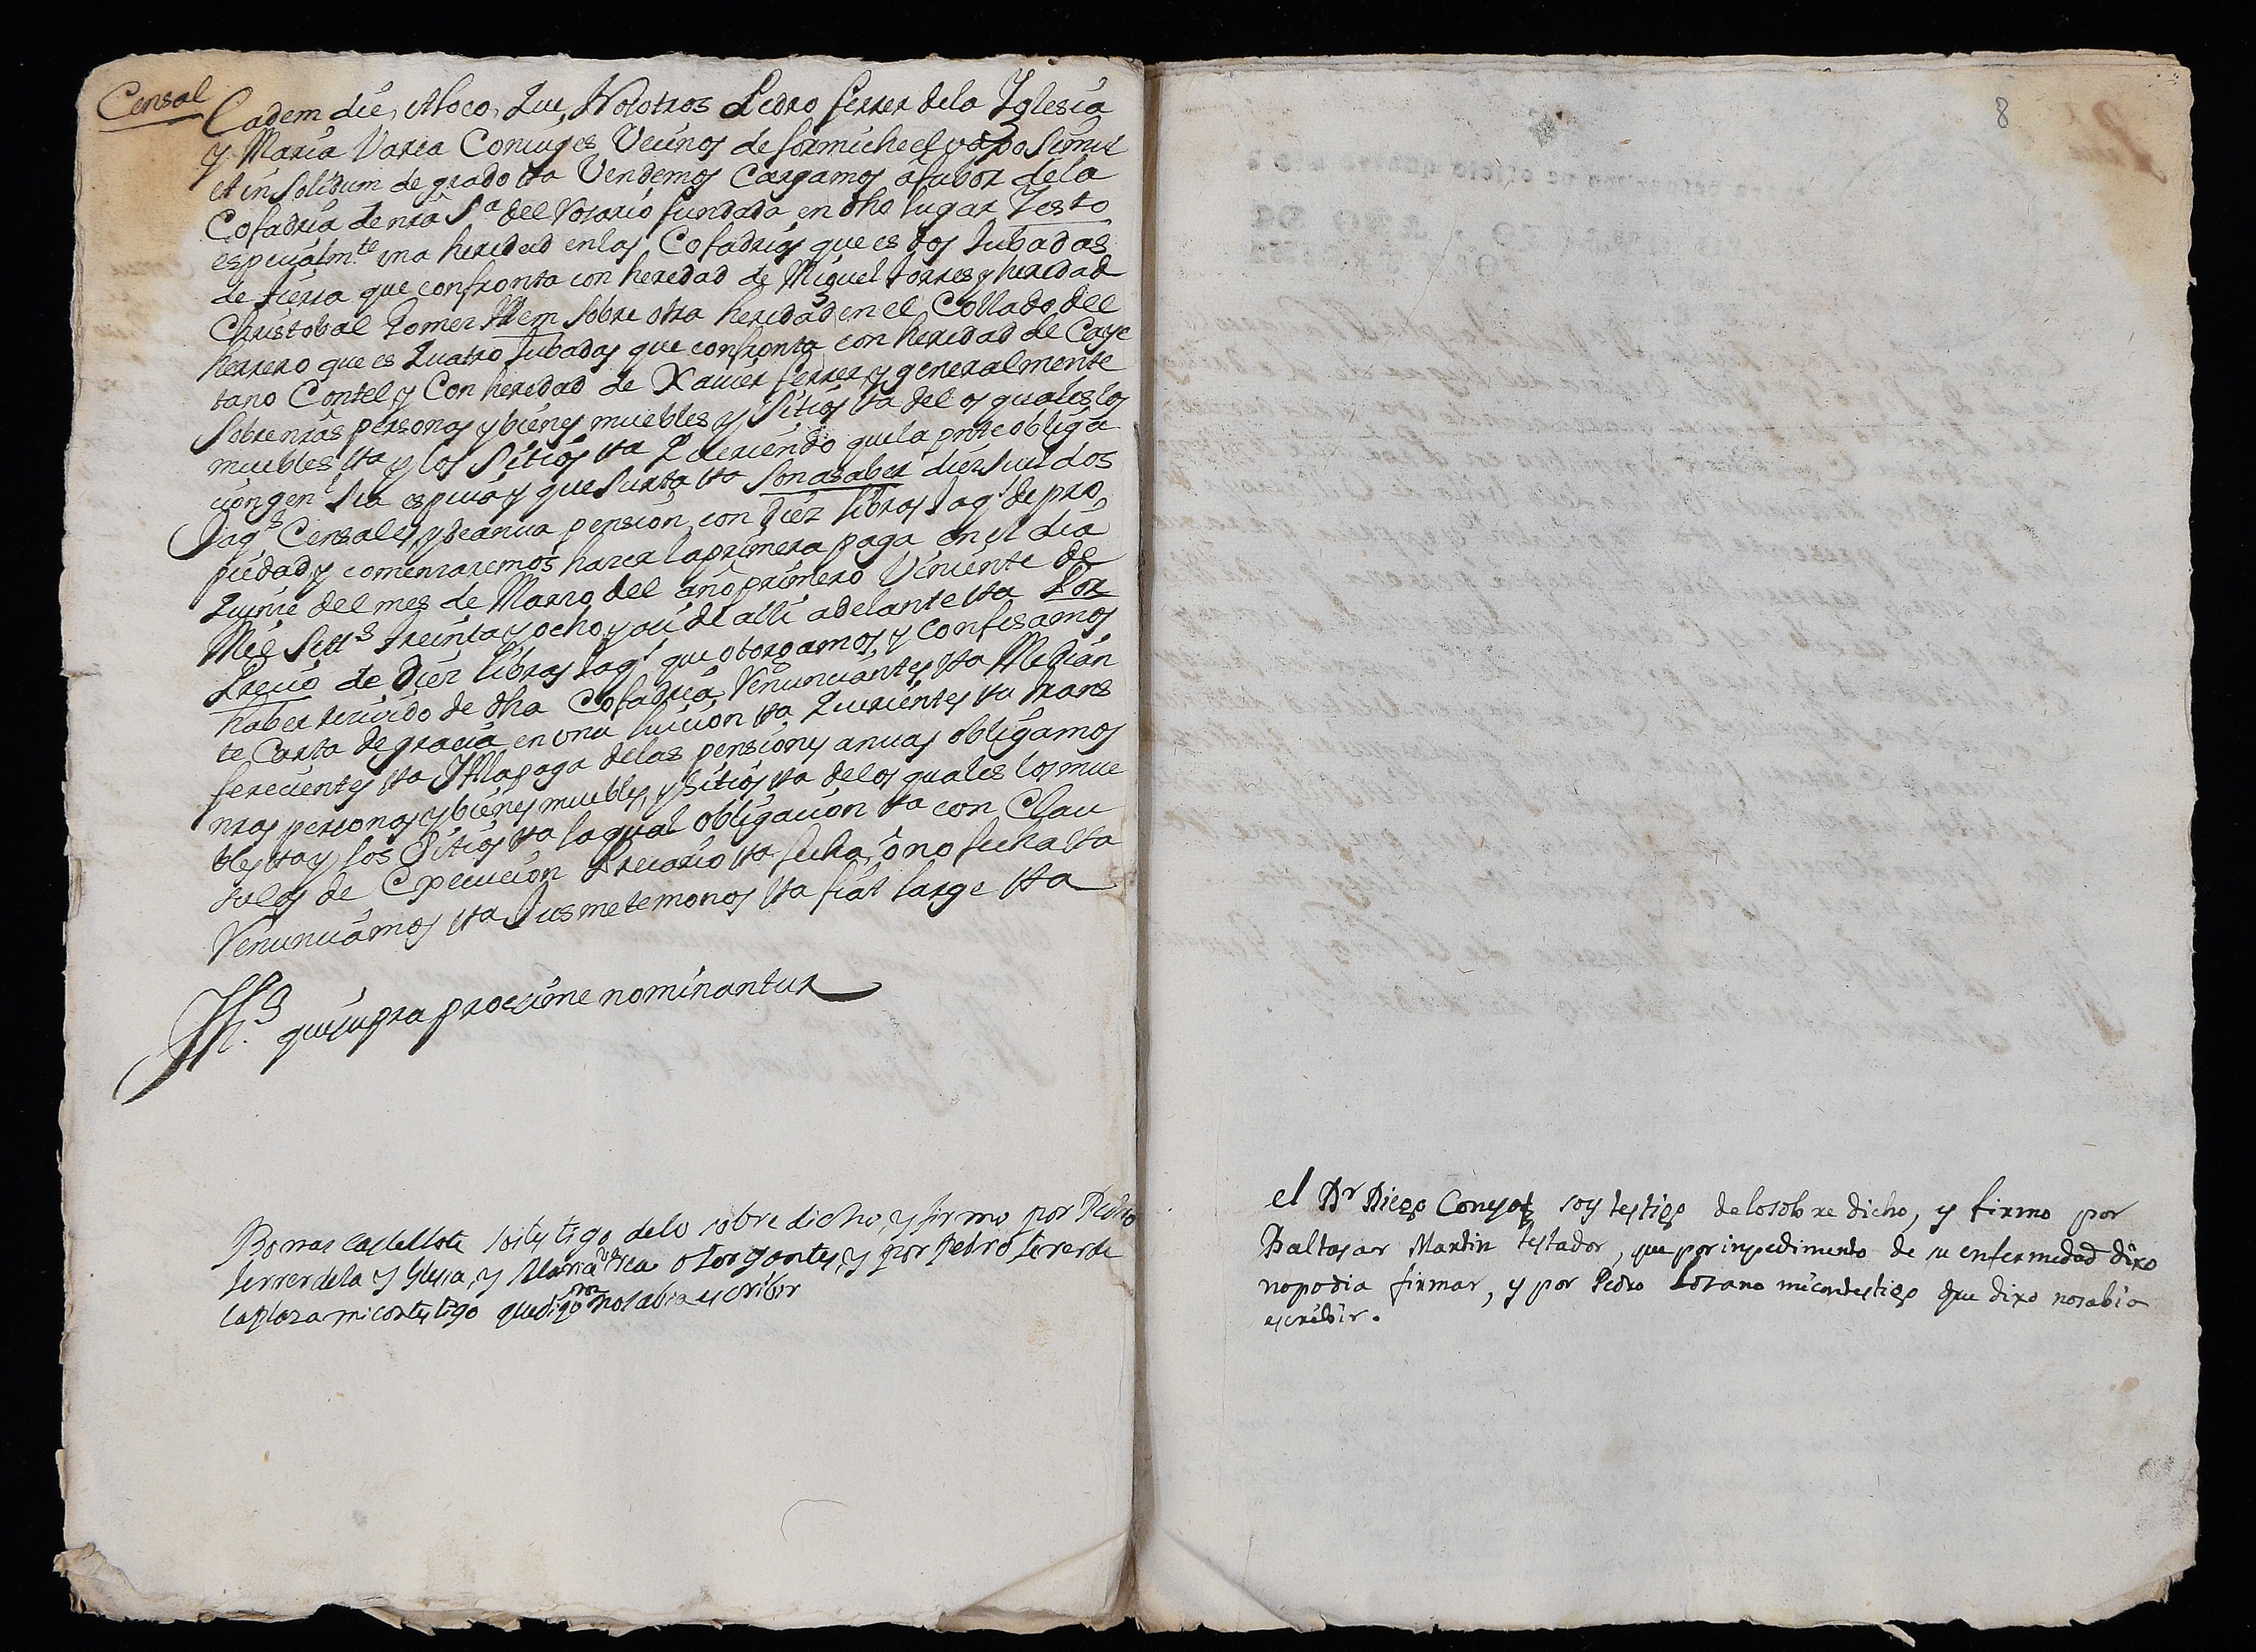 Censal
Eadem die, et loco, Que Nosotros Pedro ferrer dela Yglesia
y Maria Varea Coniuges Vecinos de formiche el vaxo simul
et in solidum de grado &a Vendemos Cargamos á fabor de la
Cofadria de nra Sa del Rosario fundada en dho lugar Y esto
especialmte una heredad en las Cofadrias que es dos Jubadas
de tierra que confronta con heredad de Miguel torres y heredad
Christobal Gomez Ittem sobre otra heredad en el Collado del
herrero que es Quatro Jubadas que confronta con heredad de Caye
tano Contel y Con heredad de Xavier ferrer, y generalmente
sobre nras personas y bienes muebles y sitios &a delos quales los
muebles &a y los Sitios &a Queriendo que la pnte obliga
cion genl sea especial y que surta &a Son asaber diez sueldos
Jaqs Censales, y de anua pension con Diez libras Jaqs de pro
piedad, y comenzaremos hazer la primera paga en el dia
Quinze del mes de Marzo del año primero Viniente de
Mil Setts treinta y ocho y asi de alli adelante &a Por
Precio de Diez libras Jaqs que otorgamos, y confesamos
haber recivido de dha Cofadria Renunciantes &a Median
te Carta de gracia en una luicion &a Queriente &a trans
ferecientes &a Y ala paga delas pensiones anuas obligamos
nras personas y bienes muebles, y sitios &a delos quales los mue
bles &a y los Sitios &a la qual obligacion &a con Clau
sulas de Execucion Precario &a fecha, ó no fecha &a
Renunciamos &a Jusmetemonos &a fiat large &a
Ths qui supra proxime nominantur
Bomas Castellote soi testigo delo sobre dicho, y firmo por Pedro
ferrer dela y glesia, y Maria Varea otorgantes, y por Pedro ferrer de
la plaza mi contestigo que digeron no sabia escribir
8
el Dr Diego Conejos soy testigo de lo sobre dicho, y firmo por
Baltasar Martin testador, que por inpedimento de su enfermedad dixo
no podia firmar, y por Pedro Lozano mi contestigo que dixo no sabia
escribir.